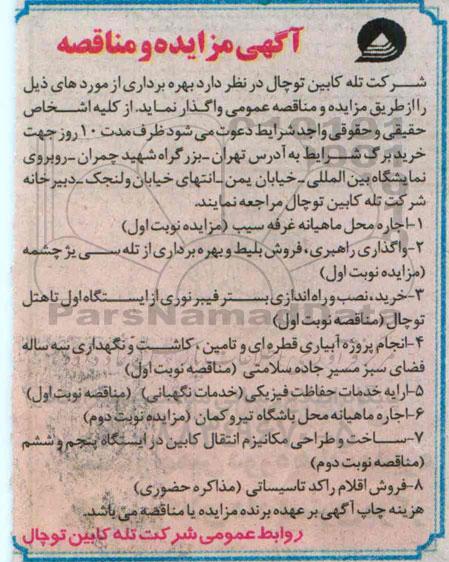 آگهی مزایده و مناقصه
شرکت تله کابین توچال در نظر دارد بهره برداری از مورد های ذیل
را از طریق مزایده و مناقصه عمومی واگذار نماید. از کلیه اشخاص
حقیقی و حقوقی واجد شرایط دعوت می شود ظرف مدت ۱۰ روز جهت
خرید برگ شرایط به آدرس تهران -بزرگراه شهید چمران -روبروی
نمایشگاه بین المللی -خیابان یمن -انتهای خیابان ولنجک -دبیرخانه
شرکت تله کابین توچال مراجعه نمایند.
۱-اجاره محل ماهیانه غرفه سیب (مزایده نوبت اول)
۲-واگذاری راهبری، فروش بلیط و بهره برداری از تله سی یژ چشمه
(مزایده نوبت اول)
۳-خرید، نصب و راه اندازی بستر فیبر نوری از ایستگاه اول تا هتل
توچال (مناقصه نوبت اول)
۴-انجام پروژه آبیاری قطره ای و تامین، کاشت و نگهداری سه ساله
فضای سبز مسیر جاده سلامتی (مناقصه نوبت اول)
۵-ارایه خدمات حفاظت فیزیکی (خدمات نگهبانی) (مناقصه نوبت اول)
۶-اجاره ماهیانه محل باشگاه تیر و کمان (مزایده نوبت دوم)
۷-ساخت و طراحی مکانیزم انتقال کابین در ایستگاه پنجم و ششم
(مناقصه نوبت دوم)
۸-فروش اقلام راکد تاسیساتی (مذاکره حضوری)
هزینه چاپ آگهی بر عهده برنده مزایده یا مناقصه می باشد.
روابط عمومی شرکت تله کابین توچال
ParsNamadData